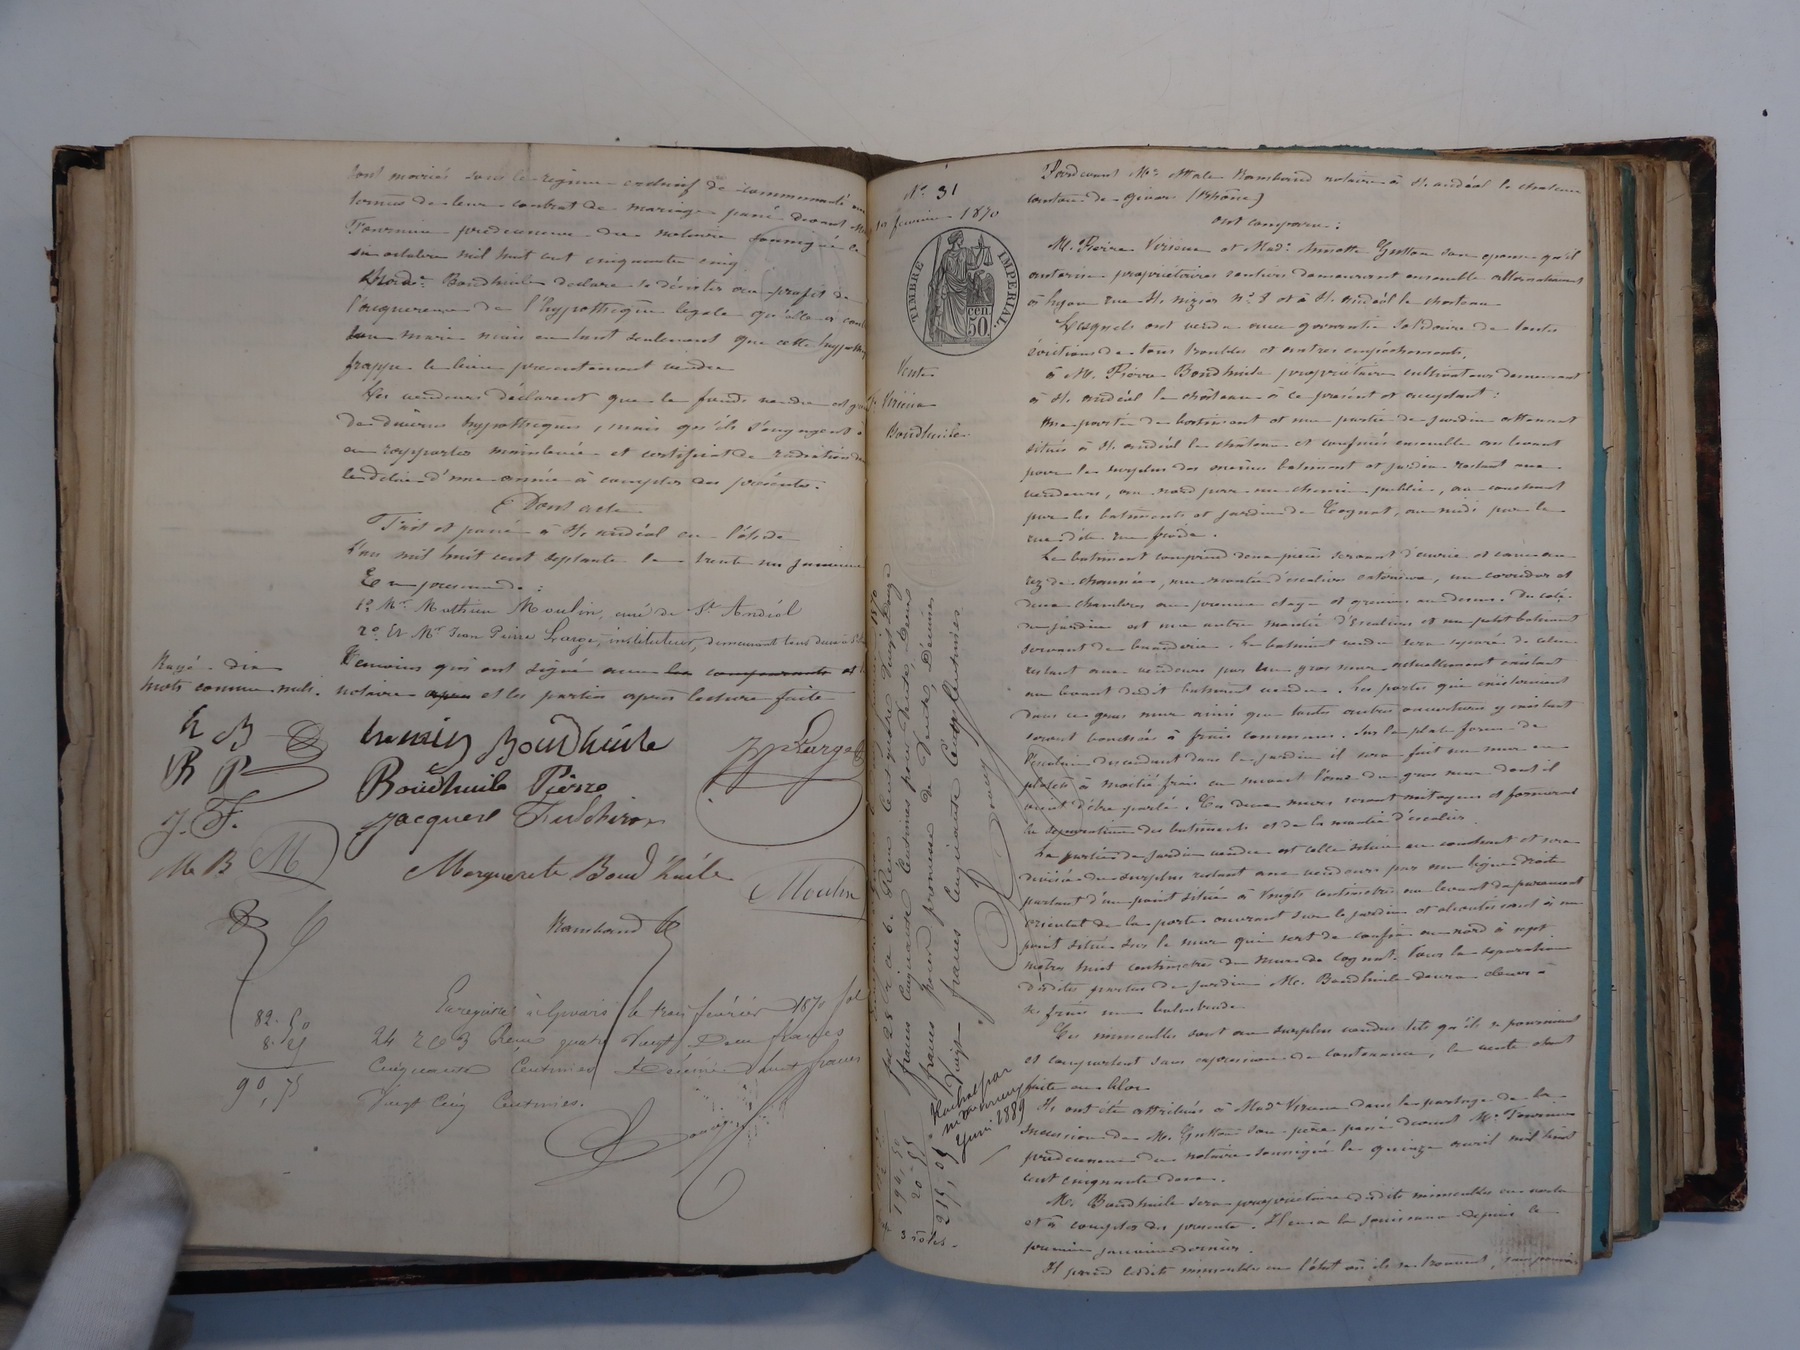 sont mariés sous le régime exclusif de communauté aux
termes de leur contrat de mariage passé devant Me
Fournier prédécesseur du notaire soussigné le
six octobre mil huit cent cinquante cinq
Made Boudhuile déclare se désister au profit de
l'acquéreur de l'hypothèque légale qu'elle a contre
son mari mais en tant seulement que cette hypothèque
frappe le bien présentement vendu
Les vendeurs déclarent que le fonds vendu est grevé
de diverses hypothèques, mais qu'ils s'engagent à
en rapporter mainlevée et certificat de radiation dans
le délai d'une année à compter des présentes.
Dont acte
Fait et passé à St andéol en l'étude
L'an mil huit cent septante le trente un janvier
En présence de :
1° Mr Mathieu Moulin, curé de St Andéol
2° Et Mr Jean Pierre Large, instituteur, demeurant tous deux à St
Témoins qui ont signé avec les comparants et le
notaire et les parties après lecture faite
Rayé dix
mots comme nuls.
Boudhuile
J P Large
B P
Boudhuile Pierre
J. F.
Jacques Fulchiron
M B M
Marguerite Boudhuile
Moulin
Rambaud
Enregistré à Givors le trois février 1870 fol
24 2 C 3 Reçu quatre Vingt Deux francs
Cinquante Centimes Décime huit francs
Vingt Cinq Centimes.
82.50
8.25
90,75
N° 31
février 1870
TIMBRE IMPÉRIAL
50 cen
Vente
Virieux
Boudhuile
francs Cinquante Centimes pour Vente, Deux
francs pour promesse de Vente, Décimes
Vingt francs Cinquante Cinq Centimes
194,50
20.55
215,05
3 rôles.
Juin 1889
Pardevant Me Rambaud notaire à St andéol le chateau
canton de givors (Rhône)
ont comparu :
M. Pierre Virieux et Made Annette Gutton son épouse qu'il
autorise propriétaires rentiers demeurant ensemble alternativement
à Lyon rue St nizier n° 8 et à St andéol le chateau
Lesquels ont vendu avec garantie solidaire de toutes
évictions de tous troubles et autres empêchements.
à M. Pierre Boudhuile propriétaire cultivateur demeurant
à St andéol le château à ce présent et acceptant :
Une partie de batiment et une partie de jardin attenant
situés à St andéol le château et confinés ensemble au levant
par le surplus des mêmes batiment et jardin restant aux
vendeurs, au nord par un chemin public, au couchant
par les batiments et jardin de Cognat, au midi par la
rue dite rue froide.
Le batiment comprend deux pièces servant d'écurie et cave au
rez de chaussée, une montée d'escalier extérieure, un corridor et
deux chambres au premier étage et grenier au dessus. Du coté
du jardin est une autre montée d'escaliers et un petit batiment
servant de buanderie. Le batiment vendu sera séparé de celui
restant aux vendeurs par un gros mur actuellement existant
au levant dudit batiment vendu. Les portes qui existeraient
dans ce gros mur ainsi que toutes autres ouvertures y existant
seront bouchées à frais communs. Sur la plate forme de
l'escalier descendant dans le jardin il sera fait un mur en
à moitié frais en suivant l'axe du gros mur dont il
vient d'être parlé. Ces deux murs seront mitoyens et formeront
la séparation des batiments et de la montée d'escalier.
La partie de jardin vendue est celle située au couchant et sera
divisée du surplus restant aux vendeurs par une ligne droite
partant d'un point situé à vingt centimètres au levant du parement
oriental de la porte ouvrant sur le jardin et aboutissant à un
point situé sur le mur qui sert de confin au nord à sept
mètres huit centimètres du mur de Cognat. Pour la séparation
desdites parties de jardin Mr. Boudhuile devra élever à
ses frais une balustrade.
Ces immeubles sont au surplus vendus tels qu'ils se poursuivent
et comportent sans expression de contenance, la vente étant
faite en bloc
Ils ont été attribués à Made Virieux dans le partage de la
succession de M. Gutton son père passé devant Me Fournier
prédécesseur du notaire soussigné le quinze avril mil huit
cent cinquante deux.
Mr. Boudhuile sera propriétaire desdits immeubles en vertu
et à compter des présentes. Il en a la jouissance depuis le
premier janvier dernier.
Il prend lesdits immeubles en l'état où ils se trouvent, sans pouvoir